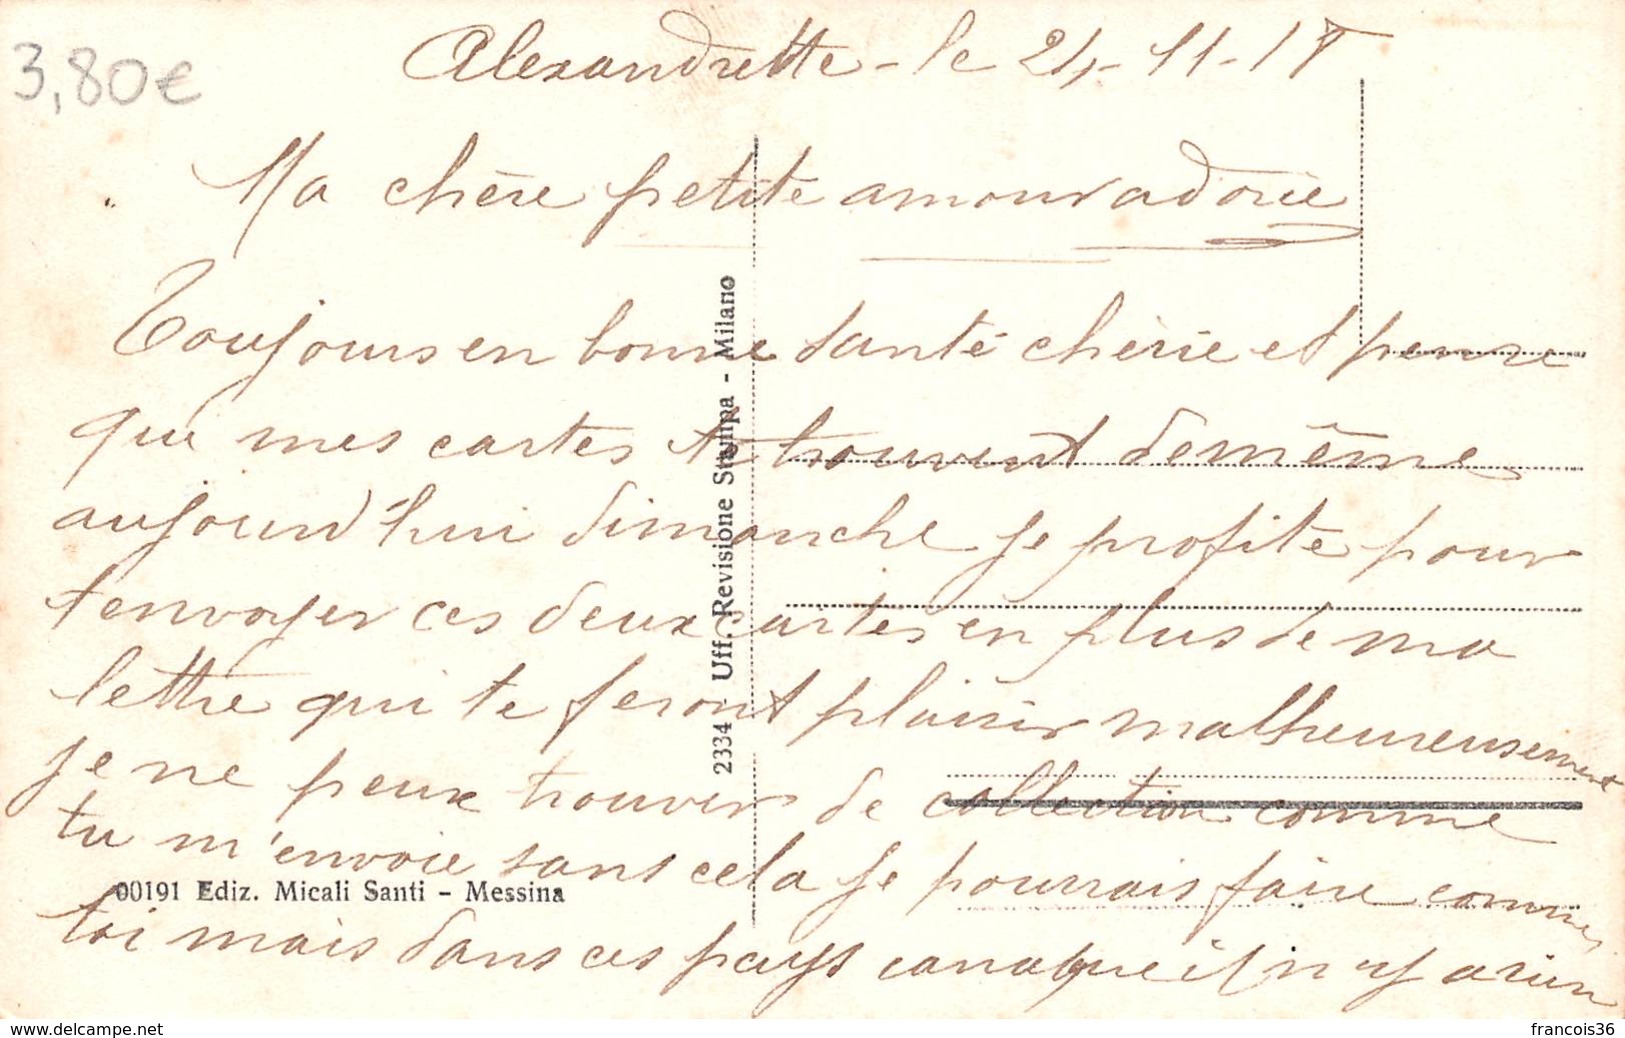 3,80€
Alexandrette - le 24-11-18
Ma chère petite amour adorée
Toujours en bonne santé chérie et pense
que mes cartes te trouvent de même
aujourd'hui dimanche je profite pour
t envoyer ces deux cartes en plus de ma
lettre qui te feront plaisir malheureusement
je ne peux trouver de collection comme
tu m'envoie sans cela je pourrais faire comme
toi mais dans ces pays il n y a rien
2334 Uff. Revisione Stampa - Milano
00191 Ediz. Micali Santi - Messina
www.delcampe.net
francois36